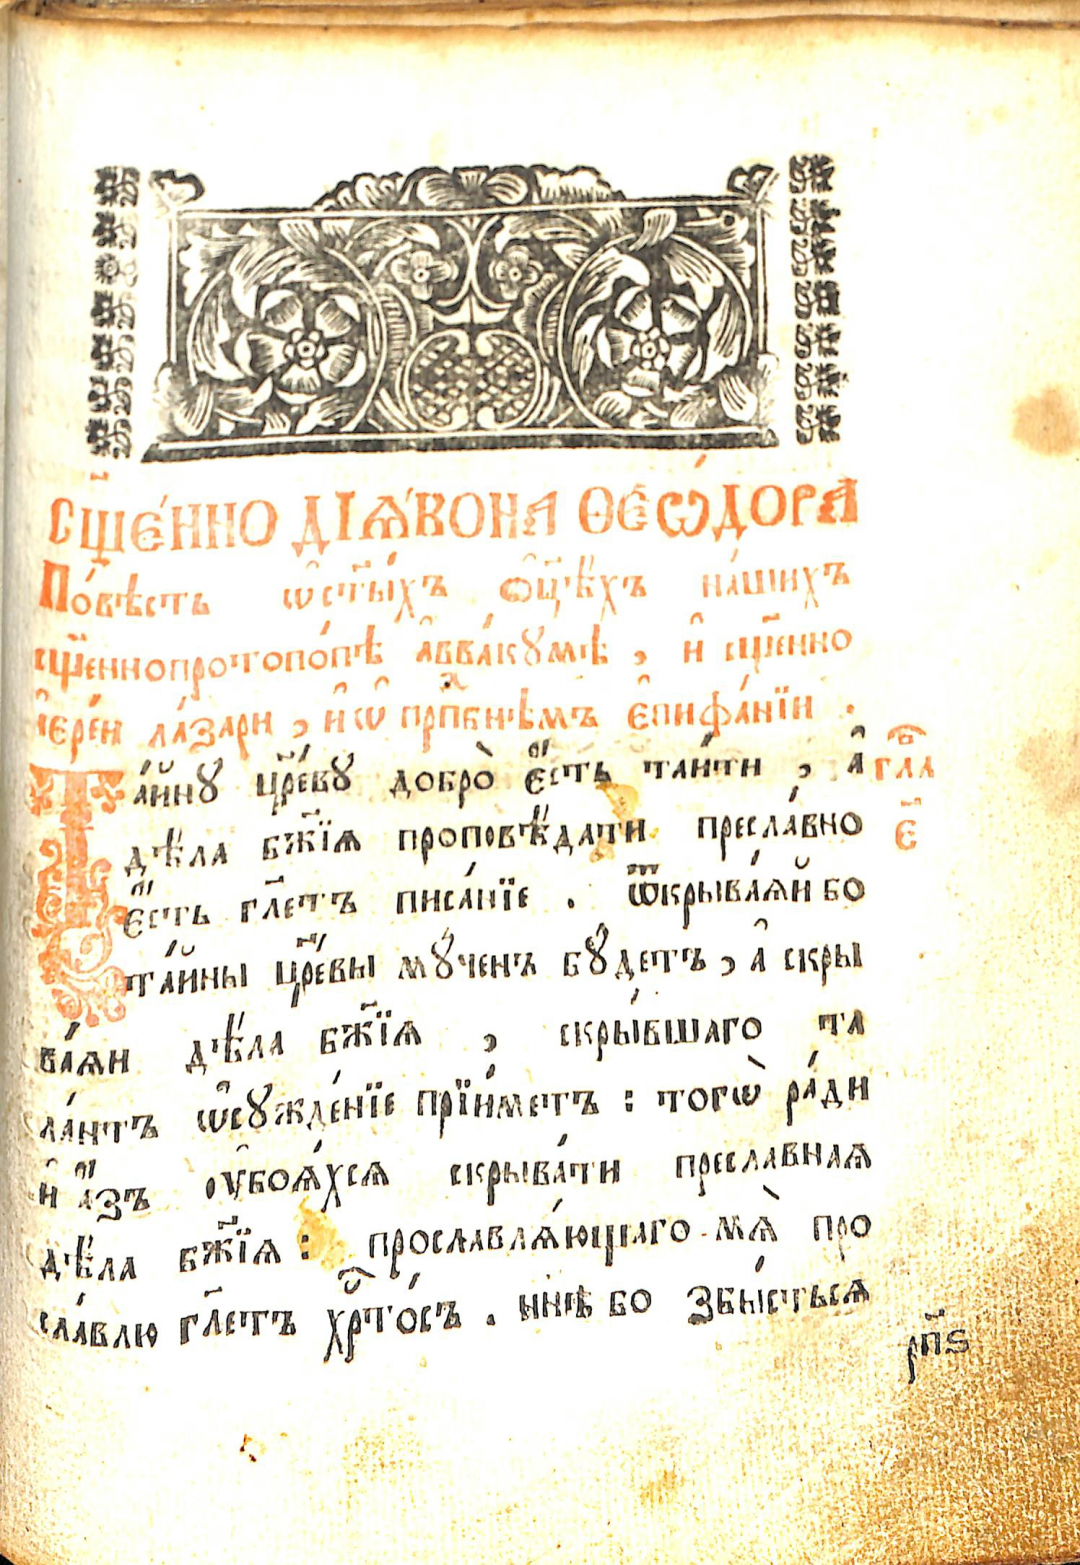 Сщ҃е́нно дїѧ́кона ѳео́дѡра
По́вѣсть ѡ҆ ст҃ы́хъ ѻ҆ц҃ѣ́хъ на́шихъ
сщ҃еннопротопо́пѣ а҆вва́кꙋмѣ , и҆ сщ҃енно
їере́и ла́зари , и҆ ѡ҆ прⷣпбнѣмъ є҆пифа́нїи .
Та́йнꙋ цр҃е́вꙋ добро̀ є҆́сть таи́ти , а҆
глаⷡ҇
є҃
дѣ́ла бж҃їѧ проповѣ́дати пресла́вно
є҆́сть гл҃етъ писа́нїе . ѿкрыва́ѧй бо
та́йны цр҃е́вы мꙋ́ченъ бꙋ́детъ , а҆ скры
ва́ѧи дѣ́ла бж҃їѧ , скры́вшаго та
ла́нтъ ѡ҆сꙋжде́нїе прїи́метъ : тогѡ̀ ра́ди
и҆ а҆́зъ ᲂу҆боѧ́хсѧ скрыва́ти преславнаѧ
дѣ́ла бж҃їѧ : прославлѧ́ющаго мѧ̀ про
сла́влю гл҃етъ хрⷭ҇то́съ . нн҃ѣ бо збы́стьсѧ
рп҃ѕ